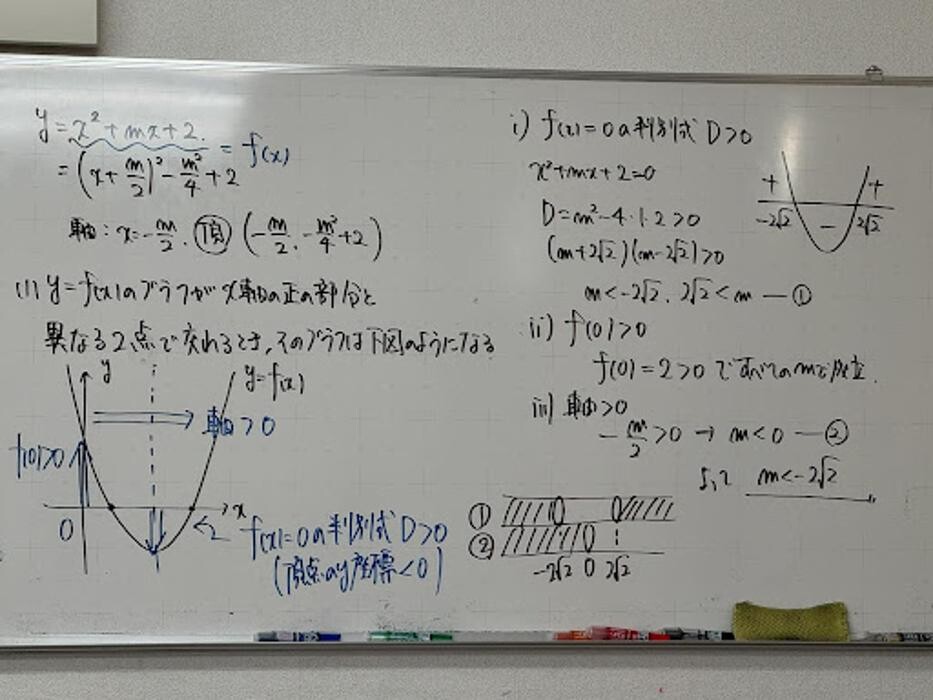 y = x² + mx + 2. = f(x)
= (x + m/2)² - m²/4 + 2
軸: x = -m/2. 頂 (-m/2, -m²/4 + 2)
(1) y = f(x)のグラフがx軸の正の部分と
異なる2点で交わるとき,そのグラフは下図のようになる
y
y = f(x)
軸 > 0
f(0) > 0
0
x
f(x) = 0の判別式 D > 0
(頂点のy座標 < 0)
i) f(x) = 0の判別式 D > 0
x² + mx + 2 = 0
D = m² - 4・1・2 > 0
(m + 2√2)(m - 2√2) > 0
m < -2√2, 2√2 < m ― ①
+ - +
-2√2 2√2
ii) f(0) > 0
f(0) = 2 > 0 ですべてのmで成立.
iii) 軸 > 0
-m/2 > 0 → m < 0 ― ②
よって m < -2√2
①
②
-2√2 0 2√2